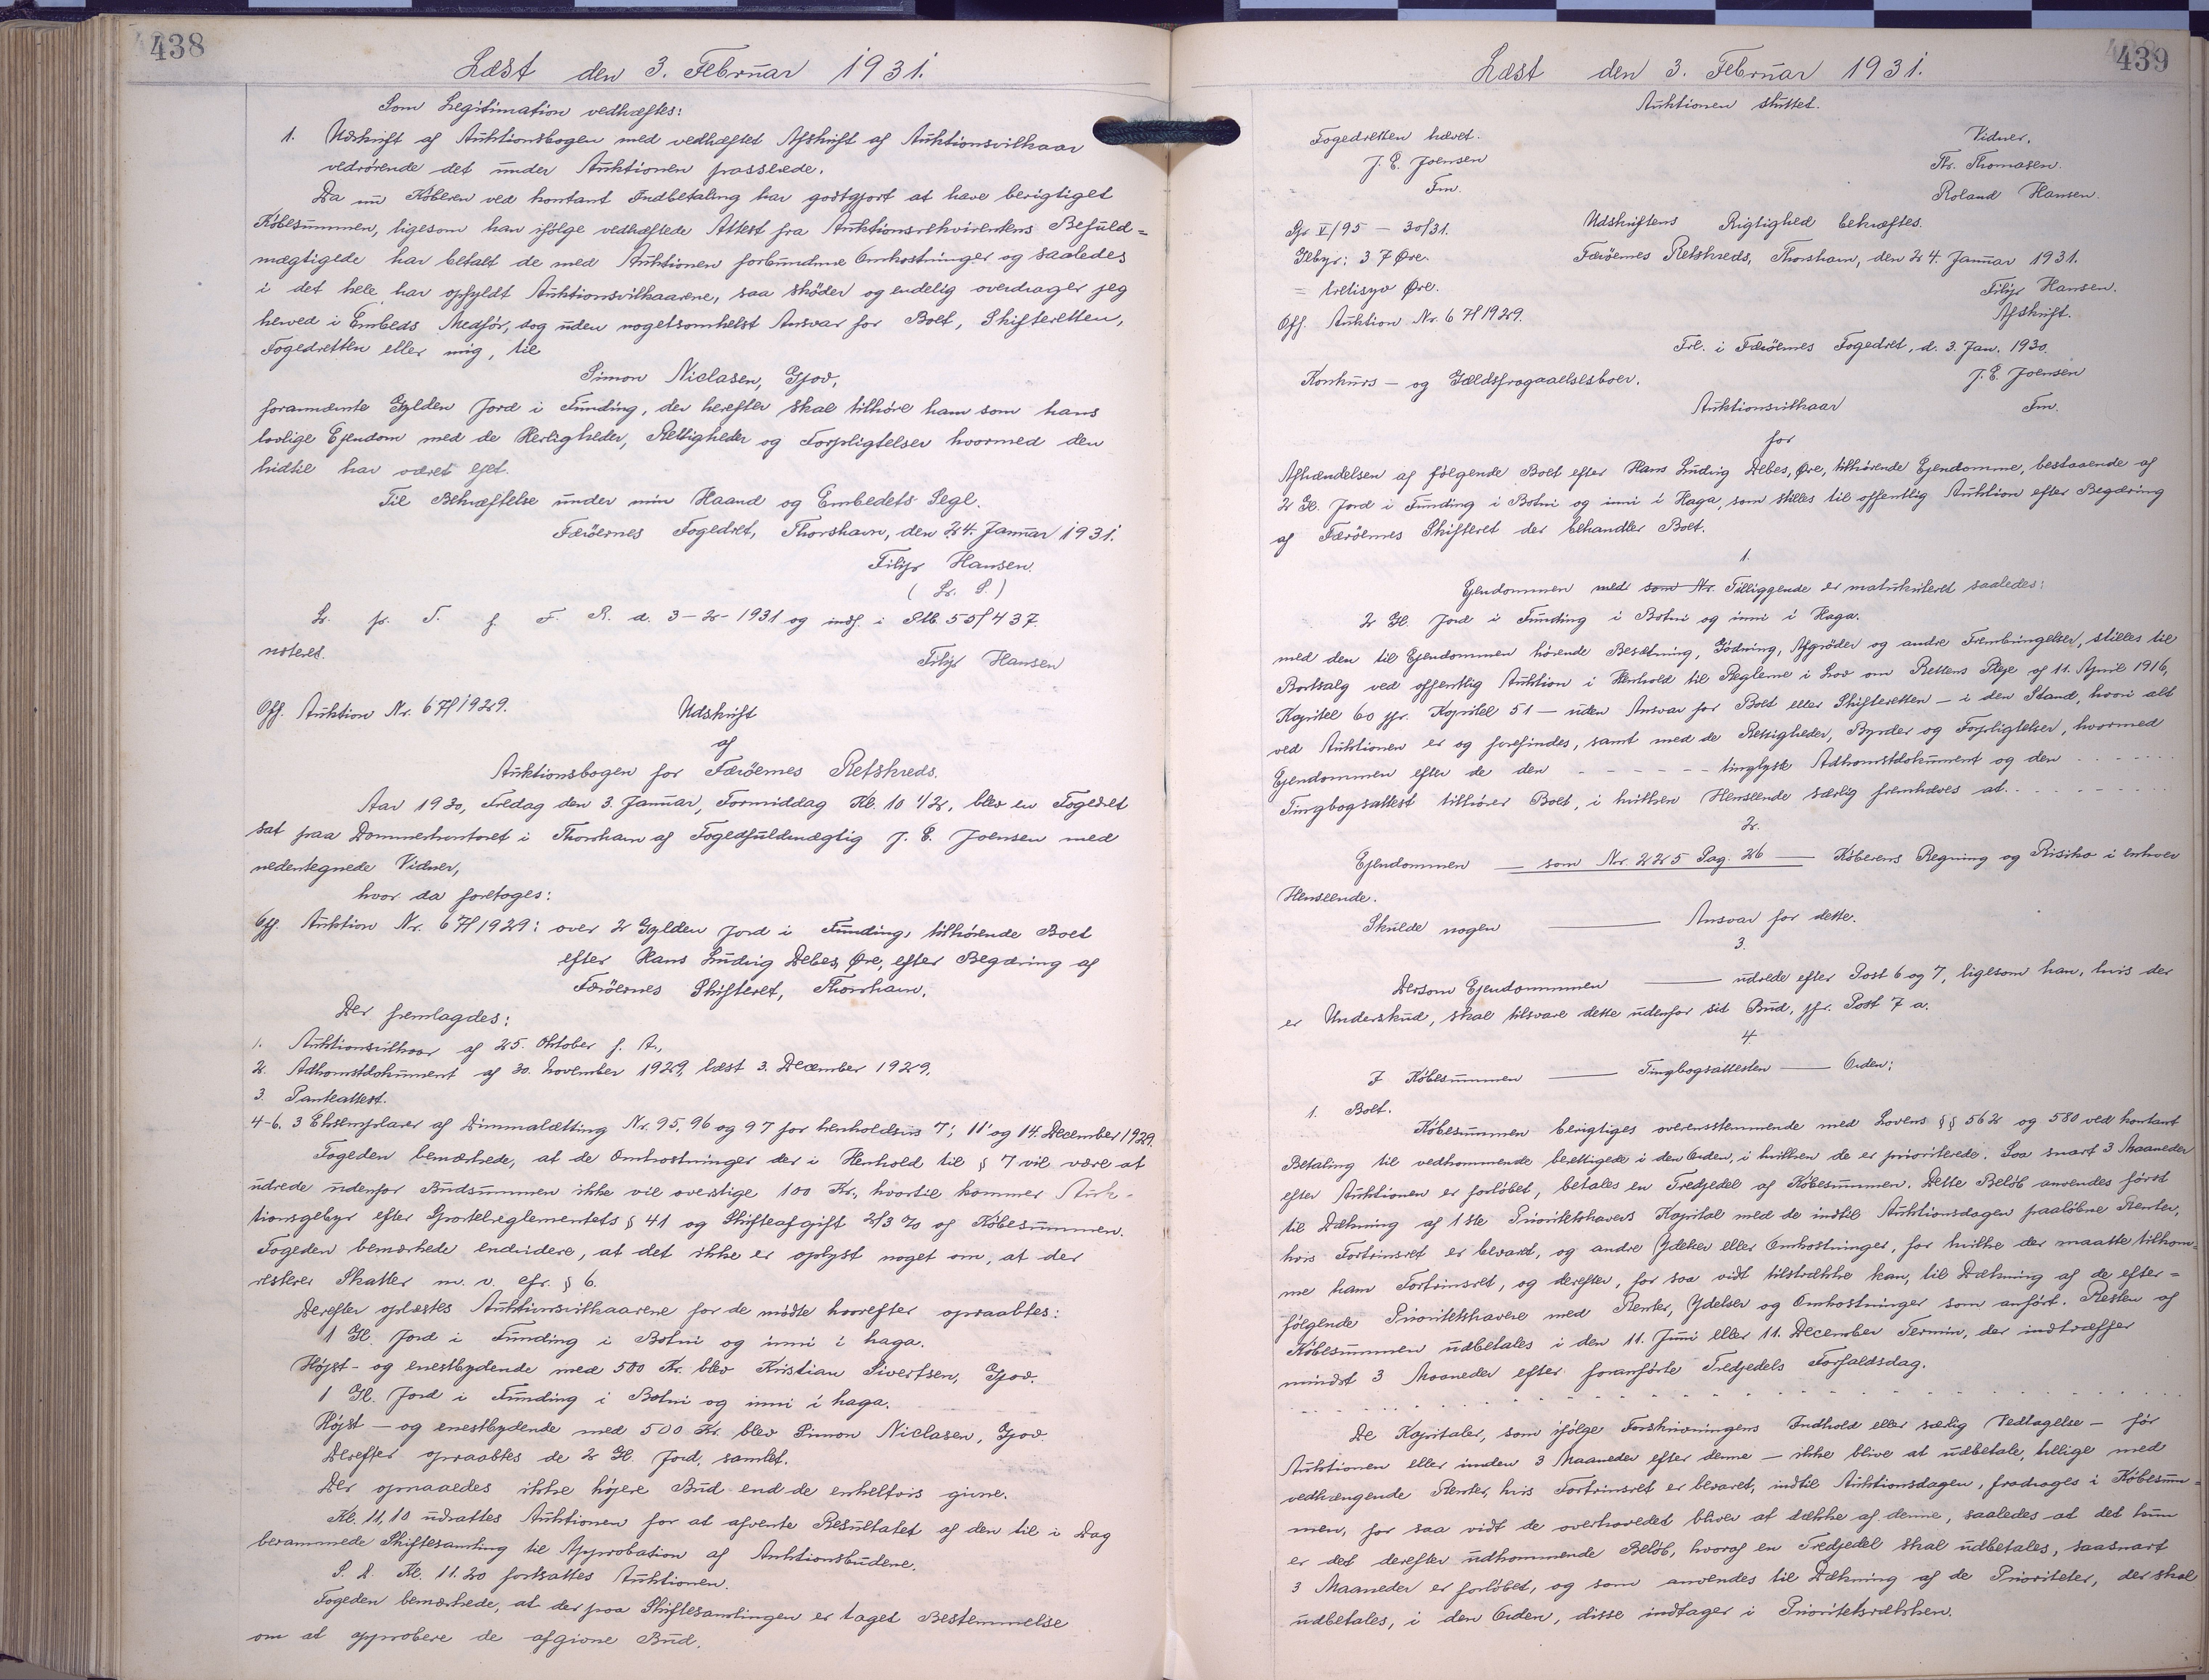 438
Læst den 3. Februar 1931.
Som Legitimation vedhæftes:
1. Udskrift af Auktionsbogen med vedhæftet Afskrift af Auktionsvilkaar
vedrørende det under Auktionen passerede.
Da nu Køberen ved kontant Indbetaling har godtgjort at have berigtiget
Købesummen, ligesom han ifølge vedhæftede Attest fra Auktionsrekvirentens Befuld-
mægtigede har betalt de med Auktionen forbundne Omkostninger og saaledes
i det hele har opfyldt Auktionsvilkaarene, saa skøder og endelig overdrager jeg
herved i Embeds Medfør, dog uden nogetsomhelst Ansvar for Boet, Skifteretten,
Fogedretten eller mig, til
Simon Niclasen, Gjov,
forannævnte Gylden Jord i Funding, der herefter skal tilhøre ham som hans
lovlige Ejendom med de Herligheder, Rettigheder og Forpligtelser hvormed den
hidtil har været ejet.
Til Bekræftelse under min Haand og Embedets Segl.
Færøernes Fogedret, Thorshavn, den 24. Januar 1931.
Filip Hansen.
(L. S.)
L. p. T. f. F. R. d. 3-2-1931 og indf. i Slb. 55/437.
noteret.
Filip Hansen
Off. Auktion Nr. 67/1929.
Udskrift
af
Auktionsbogen for Færøernes Retskreds.
Aar 1930, Fredag den 3. Januar, Formiddag Kl. 10 1/2, blev en Fogedret
sat paa Dommerkontoret i Thorshavn af Fogedfuldmægtig J. E. Joensen med
nedentegnede Vidner,
hvor da foretoges:
Off. Auktion Nr. 67/1929: over 2 Gylden Jord i Funding, tilhørende Boet
efter Hans Ludvig Debes, Øre, efter Begæring af
Færøernes Skifteret, Thorshavn.
Der fremlagdes:
1. Auktionsvilkaar af 25. Oktober f. A.,
2. Adkomstdokument af 30. November 1929, læst 3. December 1929.
3. Panteattest.
4-6. 3 Eksemplarer af Dimmalætting Nr. 95, 96 og 97 for henholdsvis 7', 11' og 14. December 1929.
Fogeden bemærkede, at de Omkostninger der i Henhold til § 7 vil være at
udrede udenfor Budsummen ikke vil overstige 100 Kr., hvortil kommer Auk-
tionsgebyr efter Sportelreglementets § 41 og Skifteafgift 2/3 % af Købesummen.
Fogeden bemærkede endvidere, at det ikke er oplyst noget om, at der
resterer Skatter m. v. cfr. § 6.
Derefter oplæstes Auktionsvilkaarene for de mødte hvorefter opraabtes:
1 Gl. Jord i Funding i Botni og inni i haga.
Højst- og enestbydende med 500 Kr. blev Kristian Sivertsen, Gjov.
1 Gl. Jord i Funding i Botni og inni i haga.
Højst- og enestbydende med 500 Kr. blev Simon Niclasen, Gjov
Derefter opraabtes de 2 Gl. Jord, samlet.
Der opnaaedes ikke højere Bud end de enkeltvis givne.
Kl. 11,10 udsattes Auktionen for at afvente Resultatet af den til i Dag
berammede Skiftesamling til Approbation af Auktionsbudene.
S. D. Kl. 11.20 fortsattes Auktionen.
Fogeden bemærkede, at der paa Skiftesamlingen er taget Bestemmelse
om at approbere de afgivne Bud.
439
Læst den 3. Februar 1931.
Auktionen sluttet.
Fogedretten hævet.
J. E. Joensen
Fm.
Vidner,
Th. Thomasen.
Roland Hansen.
Gr V/95 - 30/31.
Gebyr: 37 Øre.
= tretisyv Øre.
Udskriftens Rigtighed bekræftes.
Færøernes Retskreds, Thorshavn, den 24. Januar 1931.
Filip Hansen.
Off. Auktion Nr. 67/1929.
Afskrift.
Frl. i Færøernes Fogedret, d. 3. Jan. 1930.
J. E. Joensen
Fm.
Konkurs- og Gældsfragaaelsesboer.
Auktionsvilkaar
for
Afhændelsen af følgende Boet efter Hans Ludvig Debes, Øre, tilhørende Ejendomme, bestaaende af
2 Gl. Jord i Funding i Botni og inni i Haga, som stilles til offentlig Auktion efter Begæring
af Færøernes Skifteret der behandler Boet.
1.
Ejendommen med som Nr. Tilliggende er matrikuleret saaledes:
2 Gl. Jord i Funding i Botni og inni i Haga.
med den til Ejendommen hørende Besætning, Gødning, Afgrøder og andre Frembringelser, stilles til
Bortsalg ved offentlig Auktion i Henhold til Reglerne i Lov om Rettens Pleje af 11. April 1916,
Kapitel 60 jfr. Kapitel 51 - uden Ansvar for Boet eller Skifteretten - i den Stand, hvori alt
ved Auktionen er og forefindes, samt med de Rettigheder, Byrder og Forpligtelser, hvormed
Ejendommen efter de den - - - - - - tinglyste Adkomstdokument og den - - - - - -
Tingbogsattest tilhører Boet, i hvilken Henseende særlig fremhæves at - - - - - -
2.
Ejendommen — som Nr. 225 Pag. 26 — Køberens Regning og Risiko i enhver
Henseende.
Skulde nogen — Ansvar for dette.
3.
Dersom Ejendommen — udrede efter Post 6 og 7, ligesom han, hvis der
er Underskud, skal tilsvare dette udenfor sit Bud, jfr. Post 7 a.
4.
I Købesummen — Tingbogsattesten — Orden:
1. Boet.
Købesummen berigtiges overensstemmende med Lovens §§ 562 og 580 ved kontant
Betaling til vedkommende berettigede i den Orden, i hvilken de er prioriterede. Saa snart 3 Maaneder
efter Auktionen er forløbet, betales en Tredjedel af Købesummen. Dette Beløb anvendes først
til Dækning af 1ste Prioritetshavers Kapital med de indtil Auktionsdagen paaløbne Renter,
hvis Fortrinsret er bevaret, og andre Ydelser eller Omkostninger, for hvilke der maatte tilkom-
me ham Fortrinsret, og derefter, for saa vidt tilstrække kan, til Dækning af de efter-
følgende Prioritetshavere med Renter, Ydelser og Omkostninger som anført. Resten af
Købesummen udbetales i den 11. Juni eller 11. December Termin, der indtræffer
mindst 3 Maaneder efter foranførte Tredjedels Forfaldsdag.
De Kapitaler, som ifølge Forskrivningens Indhold eller særlig Vedtagelse - før
Auktionen eller inden 3 Maaneder efter denne - ikke blive at udbetale, tillige med
vedhængende Renter, hvis Fortrinsret er bevaret, indtil Auktionsdagen, fradrages i Købesum-
men, for saa vidt de overhovedet bliver at dække af denne, saaledes at det kun
er det derefter udkommende Beløb, hvoraf en Tredjedel skal udbetales, saasnart
3 Maaneder er forløbet, og som anvendes til Dækning af de Prioriteter, der skal
udbetales, i den Orden, disse indtager i Prioritetsrækken.